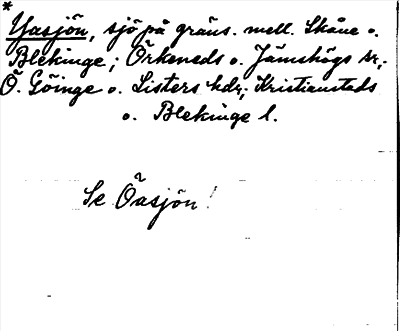 *
Yasjön, sjö på gräns. mell. Skåne o.
Blekinge; Örkeneds o. Jämshögs sr,
Ö. Göinge o. Listers hdr; Kristianstads
o. Blekinge l.
Se Öasjön!